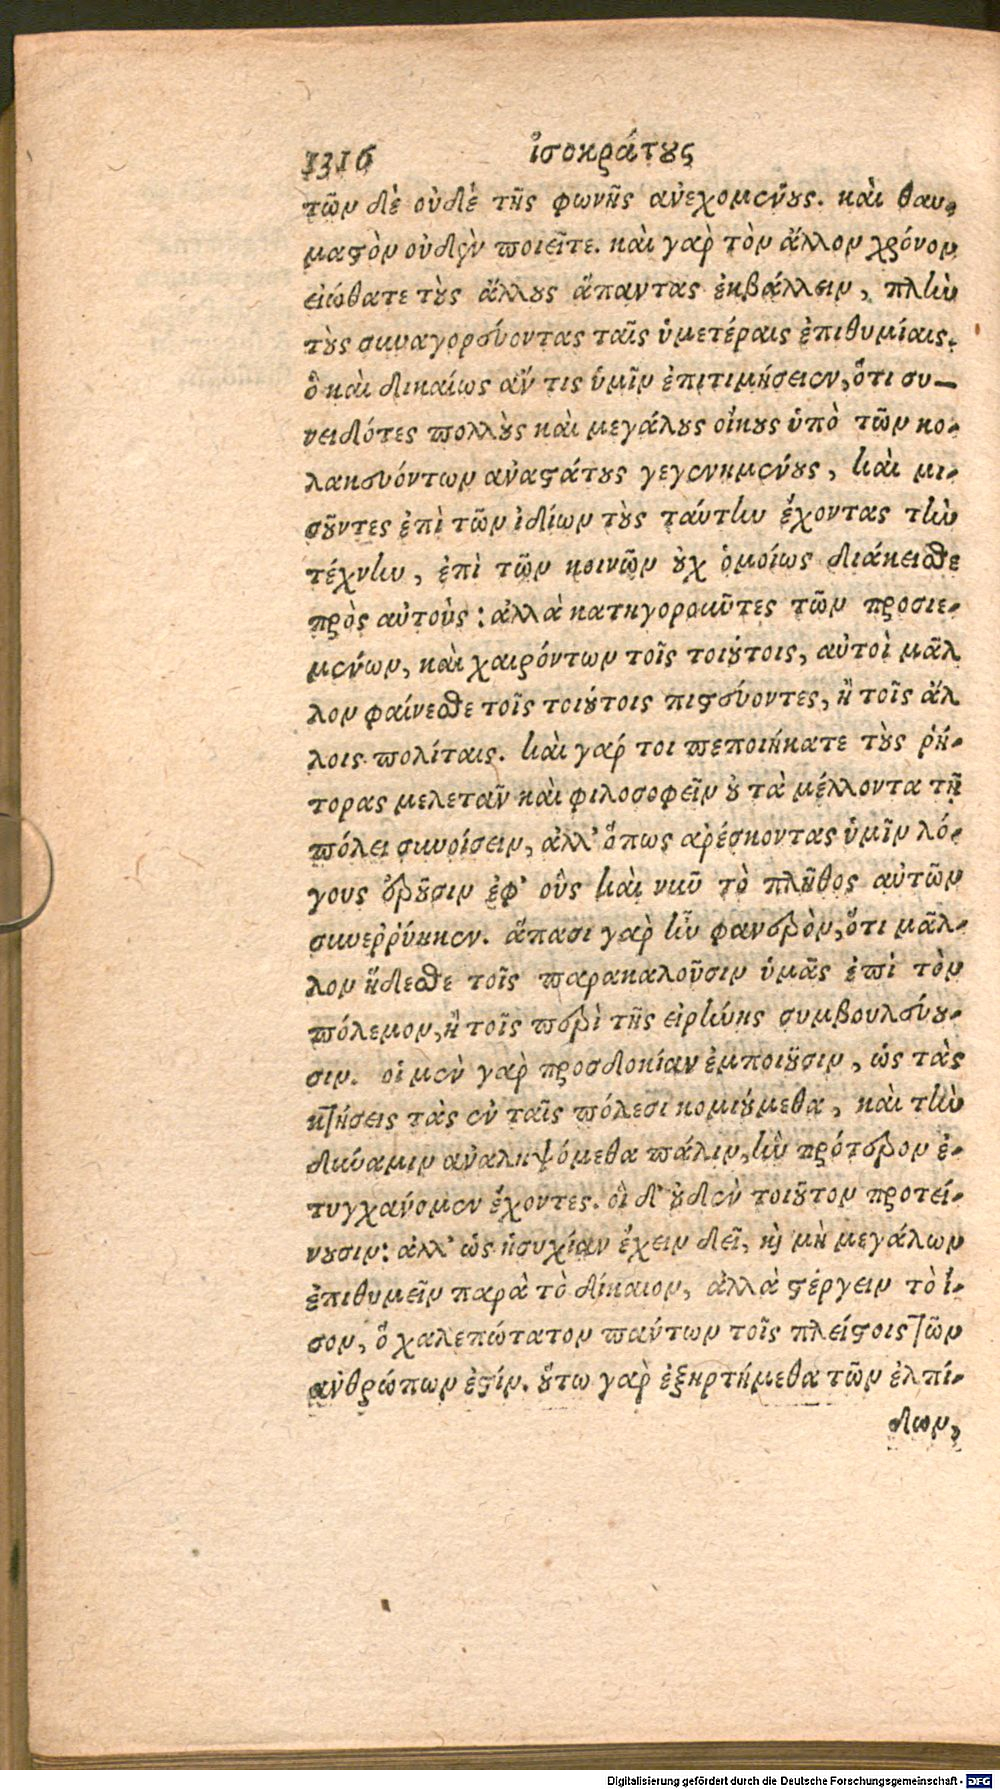 1316 ἰσοκράτους
τῶν δὲ οὐδὲ τῆς φωνῆς ἀνεχομένους. καὶ θαυ-
μαστὸν οὐδὲν ποιεῖτε. καὶ γὰρ τὸν ἄλλον χρόνον
εἰώθατε τοὺς ἄλλους ἅπαντας ἐκβάλλειν, πλὴν
τοὺς συναγορεύοντας ταῖς ὑμετέραις ἐπιθυμίαις.
ὃ καὶ δικαίως ἄν τις ὑμῖν ἐπιτιμήσειεν, ὅτι συ-
νειδότες πολλοὺς καὶ μεγάλους οἴκους ὑπὸ τῶν κο-
λακευόντων ἀναστάτους γεγενημένους, καὶ μι-
σοῦντες ἐπὶ τῶν ἰδίων τοὺς ταύτην ἔχοντας τὴν
τέχνην, ἐπὶ τῶν κοινῶν οὐχ ὁμοίως διάκεισθε
πρὸς αὐτούς: ἀλλὰ κατηγοροῦντες τῶν προσιε-
μένων, καὶ χαιρόντων τοῖς τοιούτοις, αὐτοὶ μᾶλ
λον φαίνεσθε τοῖς τοιούτοις πιστεύοντες, ἢ τοῖς ἄλ
λοις πολίταις. καὶ γάρ τοι πεποιήκατε τοὺς ῥή-
τορας μελετᾶν καὶ φιλοσοφεῖν οὐ τὰ μέλλοντα τῇ
πόλει συνοίσειν, ἀλλ' ὅπως ἀρέσκοντας ὑμῖν λό-
γους ἐροῦσιν ἐφ' οὓς καὶ νῦν τὸ πλῆθος αὐτῶν
συνερρύηκεν. ἅπασι γὰρ ἦν φανερὸν, ὅτι μᾶλ-
λον ἥδεσθε τοῖς παρακαλοῦσιν ὑμᾶς ἐπὶ τὸν
πόλεμον, ἢ τοῖς περὶ τῆς εἰρήνης συμβουλεύου-
σιν. οἱ μὲν γὰρ προσδοκίαν ἐμποιοῦσιν, ὡς τὰς
κτήσεις τὰς ἐν ταῖς πόλεσι κομιούμεθα, καὶ τὴν
δύναμιν ἀναληψόμεθα πάλιν, ἣν πρότερον ἐ-
τυγχάνομεν ἔχοντες. οἳ δ' οὐδὲν τοιοῦτον προτεί-
νουσιν: ἀλλ' ὡς ἡσυχίαν ἔχειν δεῖ, καὶ μὴ μεγάλων
ἐπιθυμεῖν παρὰ τὸ δίκαιον, ἀλλὰ στέργειν τὸ ἴ-
σον, ὃ χαλεπώτατον πάντων τοῖς πλείστοις τῶν
ἀνθρώπων ἐστίν. οὕτω γὰρ ἐξηρτήμεθα τῶν ἐλπί-
δων,
Digitalisierung gefördert durch die Deutsche Forschungsgemeinschaft - DFG